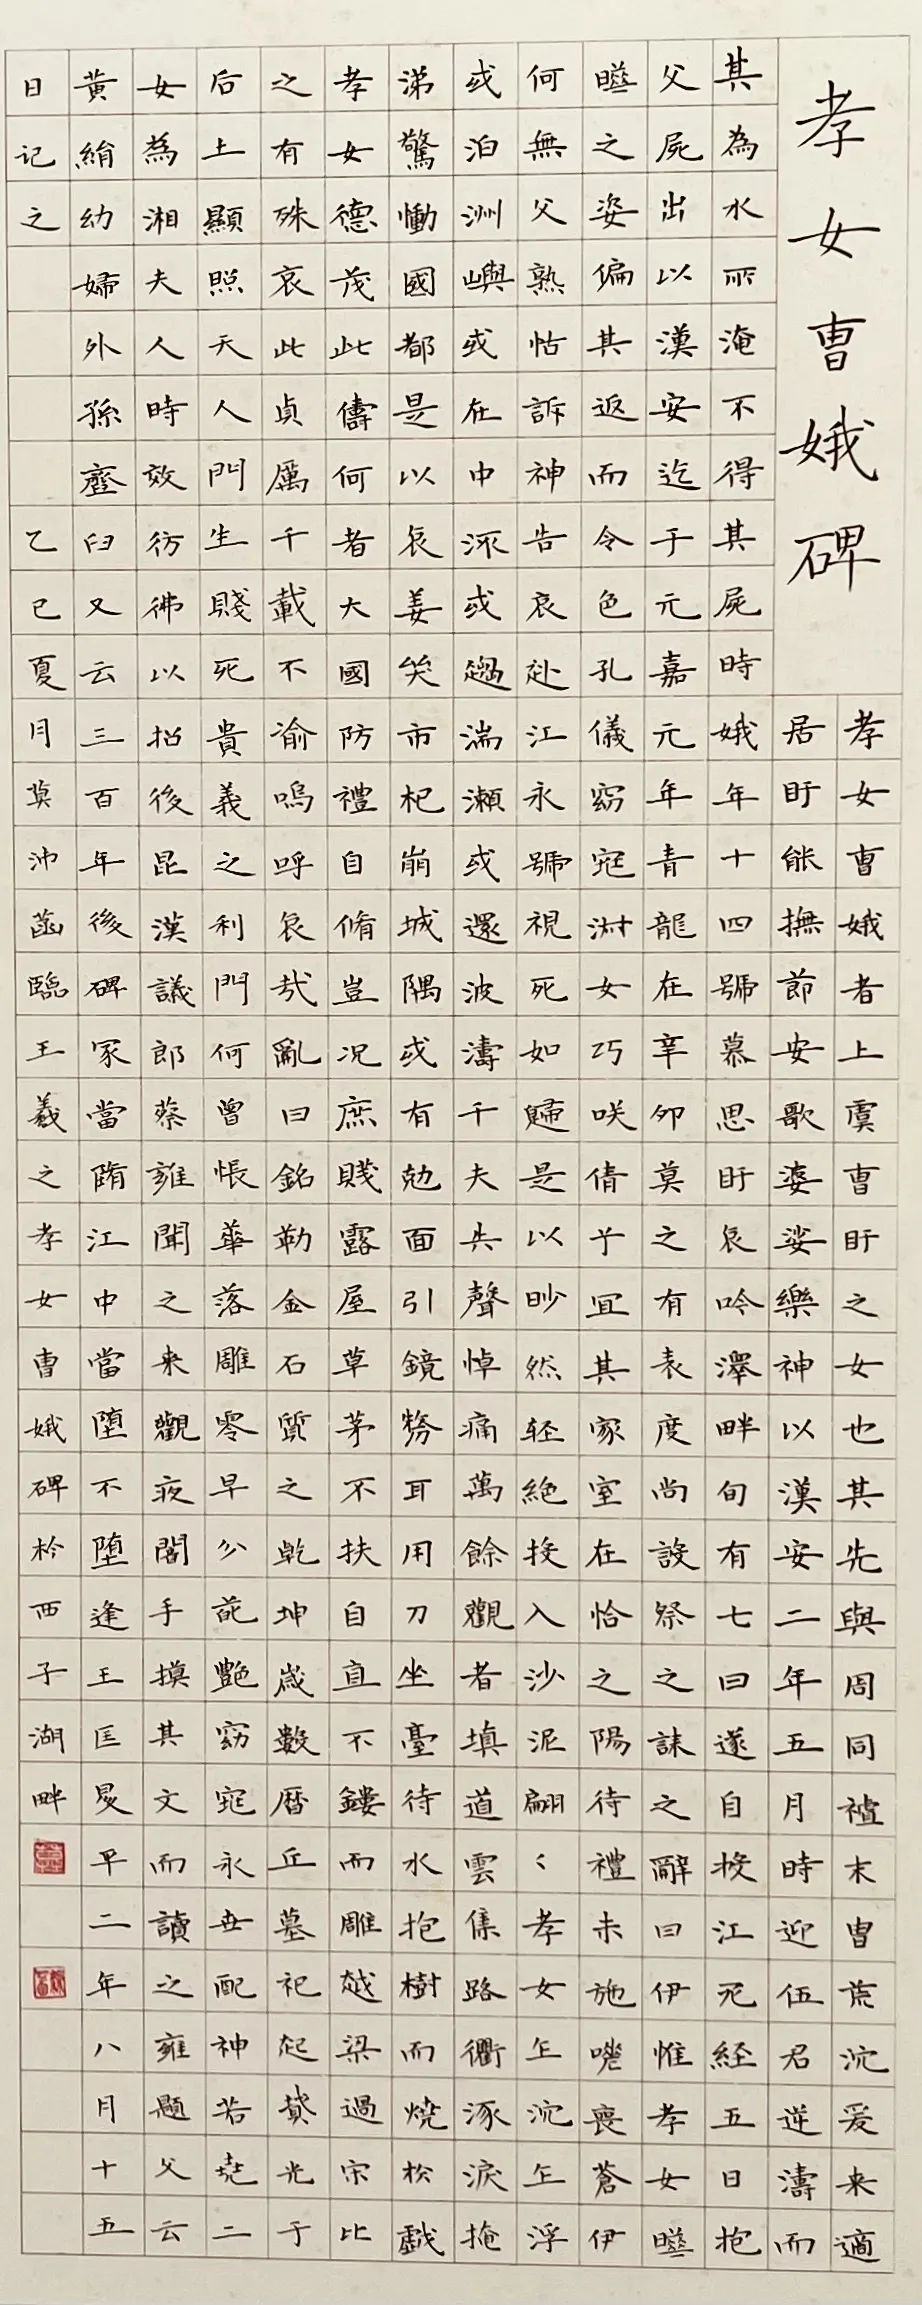 孝女曹娥碑
孝女曹娥者上虞曹盱之女也其先與周同禮末冑荒沉爰来適
居盱能撫節安歌婆娑樂神以漢安二年五月時迎伍君逆濤而
其為水所淹不得其屍時娥年十四號慕思盱哀吟澤畔旬有七日遂自投江死経五日抱
父屍出以漢安迄于元嘉元年青龍在辛卯莫之有表度尚設祭之誄之辭曰伊惟孝女曄
曄之姿偏其返而令色孔儀窈窕淑女巧咲倩兮宜其家室在恰之陽待禮未施嗟喪蒼伊
何無父孰怙訴神告哀赴江永號視死如歸是以眇然轻絕投入沙泥翩〻孝女乍沉乍浮
或泊洲嶼或在中流或趨湍瀬或還波濤千夫失聲悼痛萬餘觀者填道雲集路衢涿淚掩
涕驚慟國都是以哀姜哭市杞崩城隅或有勉面引鏡剺耳用刀坐臺待水抱樹而燒於戲
孝女德茂此儔何者大國防禮自脩豈况庶賤露屋草茅不扶自直不鏤而雕越梁過宋比
之有殊哀此貞厲千載不渝嗚呼哀哉亂曰銘勒金石質之乾坤歲數暦丘墓祀起墳光于
后土顯照天人門生賤死貴義之利門何曾悵華落雕零早分葩艷窈窕永世配神若堯二
女為湘夫人時效彷彿以招後昆漢議郎蔡雍聞之来觀夜闇手摸其文而讀之雍題父云
黄絹幼婦外孫齏臼又云三百年後碑冢當隋江中當堕不堕逢王匡昃平二年八月十五
日记之 乙已夏月莫沖菡臨王羲之孝女曹娥碑於西子湖畔